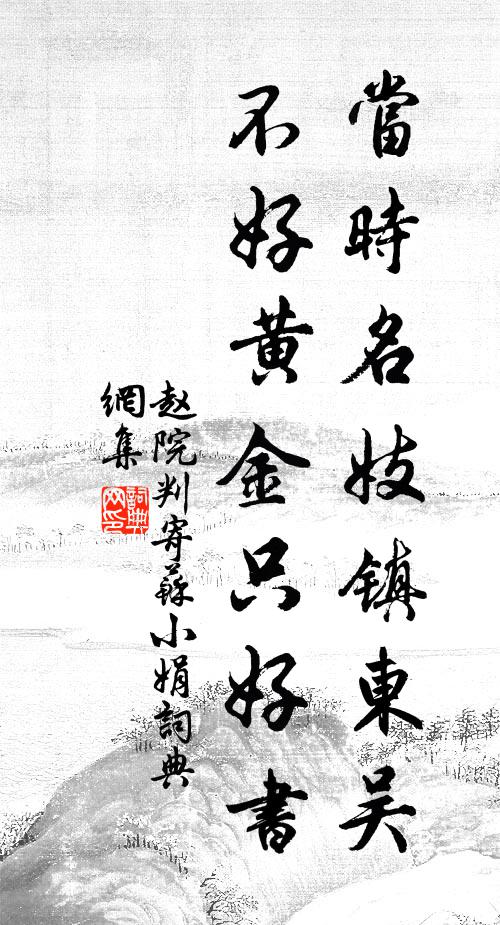 當時名妓镇東吴
不好黄金只好書
赵院判寄蘇小娟詞典
網集
詞典网印